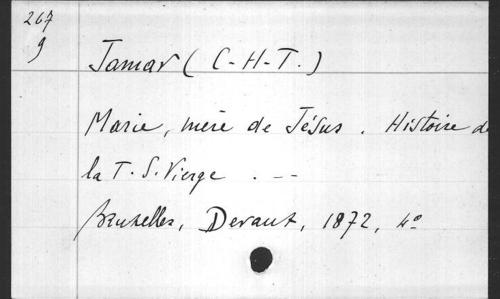 267
9
Jamar (C-H-T.)
Marie, mère de Jésus. Histoire de
la T. S. Vierge . --
Bruxelles, Devaux, 1872, 4º